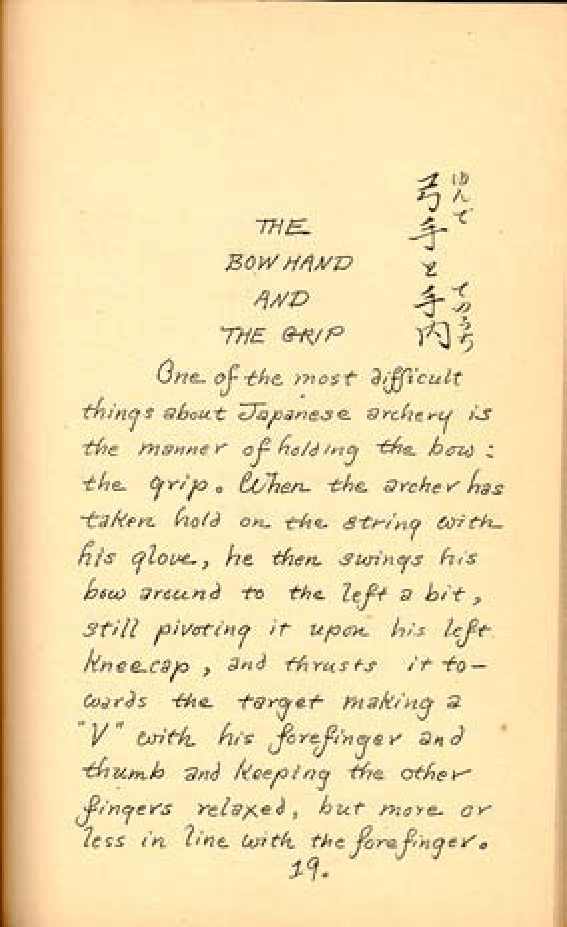 THE
BOW HAND
AND
THE GRIP
弓手と手内
ゆんで てのうち
One of the most difficult
things about Japanese archery is
the manner of holding the bow :
the grip. When the archer has
taken hold on the string with
his glove, he then swings his
bow around to the left a bit,
still pivoting it upon his left
kneecap, and thrusts it to–
wards the target making a
"V" with his forefinger and
thumb and keeping the other
fingers relaxed, but more or
less in line with the forefinger.
19.